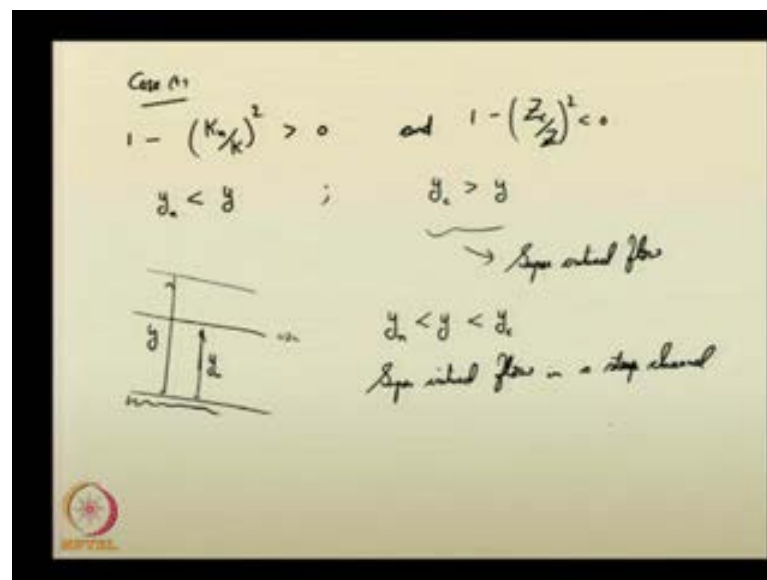 Case
1 - (Kn/K)² > 0 and 1 - (Zc/Z)² < 0
yn < y ; yc > y
→ Super critical flow
yn < y < yc
Super critical flow in a steep channel
y
yn
NPTEL